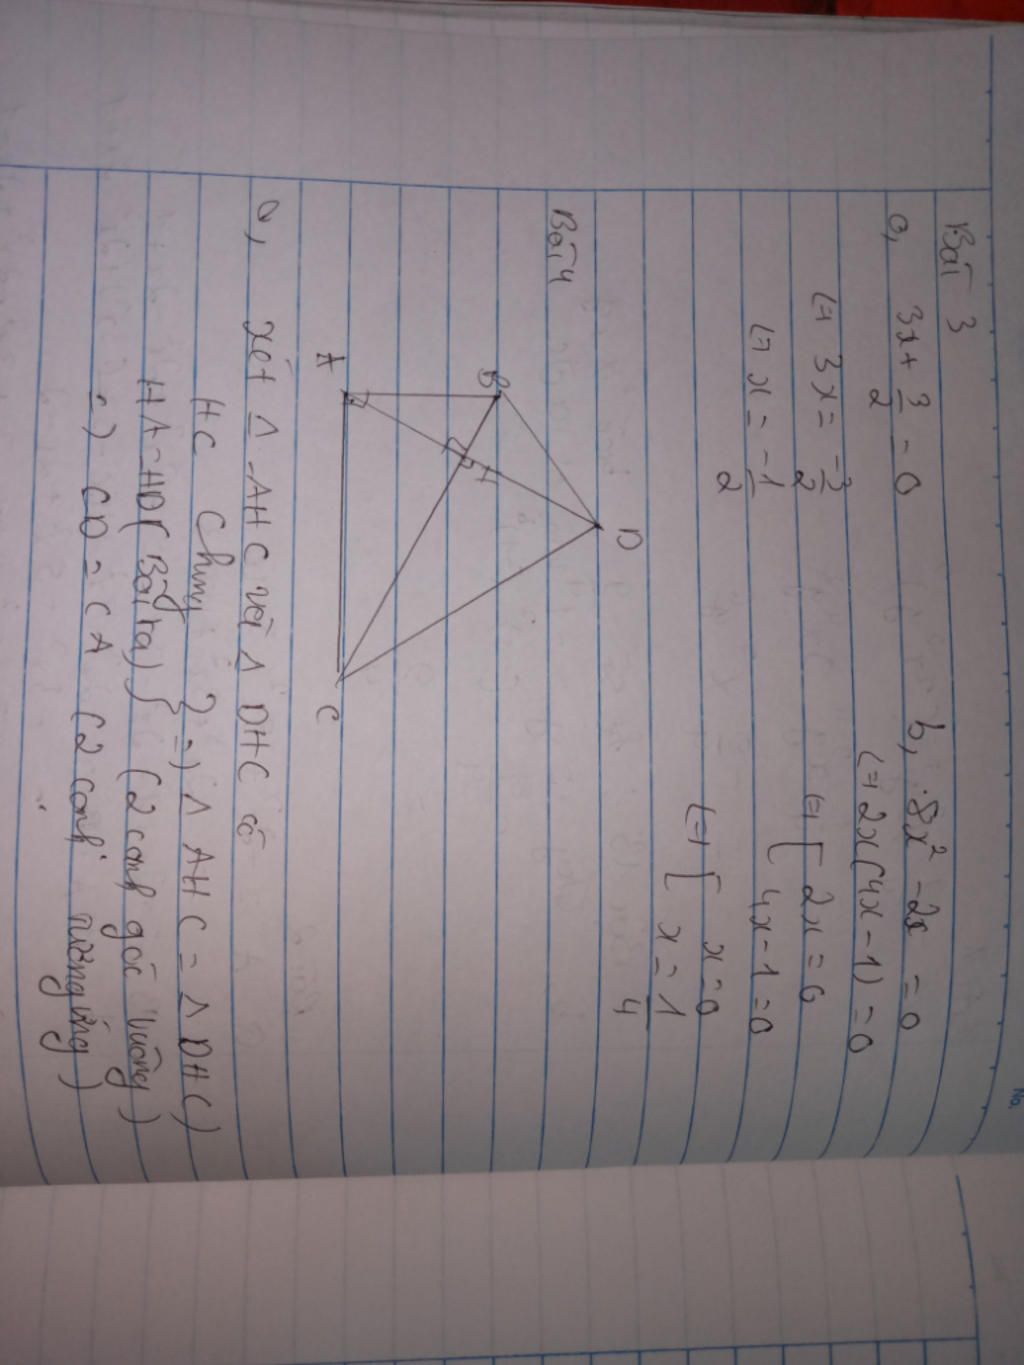 No.
Bài 3
a, 3x + 3/2 = 0
(=) 3x = -3/2
(=) x = -1/2
b, 8x² - 2x = 0
(=) 2x(4x - 1) = 0
(=) [ 2x = 0
4x - 1 = 0
(=) [ x = 0
x = 1/4
Bài 4
D
B
H
A
C
a, xét Δ AHC và Δ DHC có
HC chung } =) Δ AHC = Δ DHC)
HA = HD (Bài ra) } (2 cạnh góc vuông)
=) CD = CA (2 cạnh tương ứng)